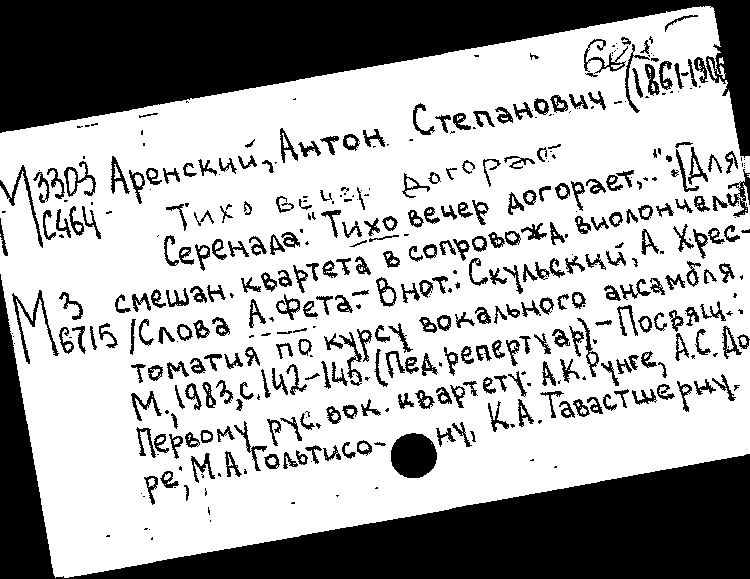 М3303 Аренский, Антон Степанович (1861-1906)
С464 Тихо вечер догорает
Серенада: "Тихо вечер догорает,..": [Для
М3 смешан. квартета в сопровожд. виолончали]
6715 /Слова А. Фета.- В нот.: Скульский, А. Хрес-
томатия по курсу вокального ансамбля.
М., 1983, с. 142-145. (Пед. репертуар).- Посвящ.:
Первому рус. вок. квартету: А.К. Рунге, А.С. До
ре; М.А. Гольтисо- ну, К.А. Тавастшерну.